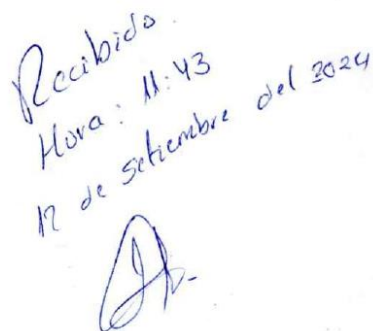 Recibido.
Hora: 11:43
12 de setiembre del 2024